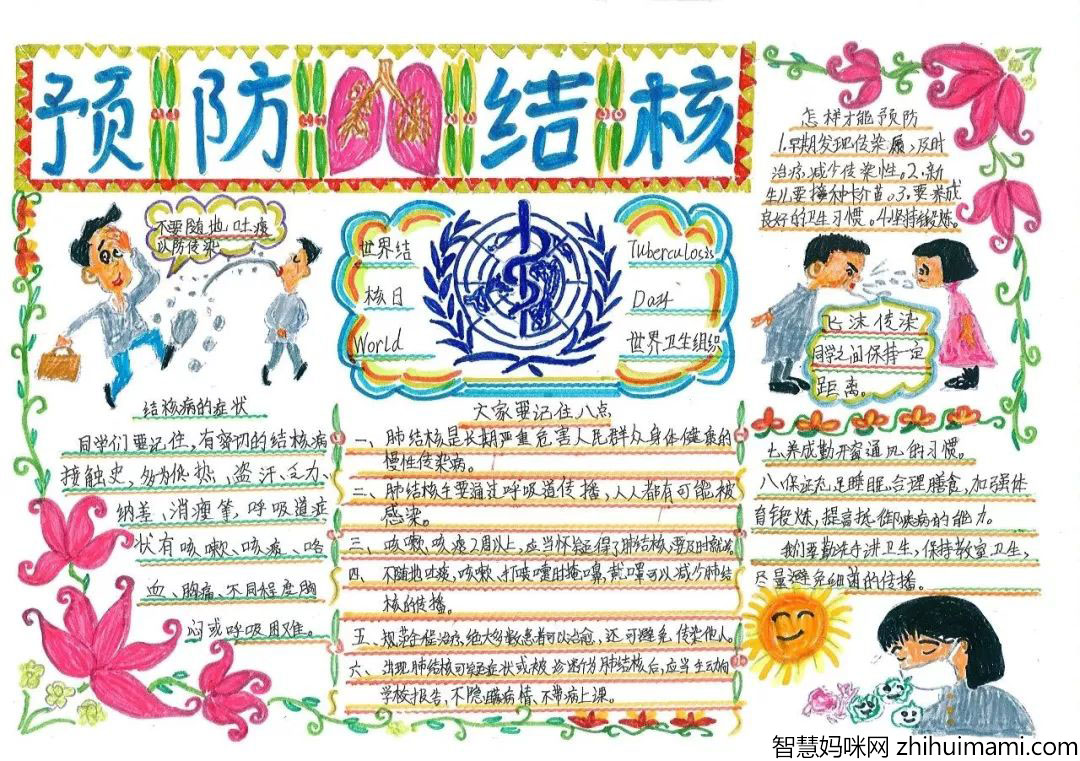 预防结核
不要随地吐痰
以防传染
世界结
核日
World
Tuberculosis
Day
世界卫生组织
怎样才能预防
1.早期发现传染源,及时
治疗,减少传染性。2.新
生儿要接种卡介苗。3.要养成
良好的卫生习惯。4.坚持锻炼。
飞沫传染
同学之间保持一定
距离。
结核病的症状
同学们要记住,有密切的结核病
接触史,多为低热、盗汗、乏力、
纳差、消瘦等,呼吸道症
状有咳嗽、咳痰、咯
血、胸痛、不同程度胸
闷或呼吸困难。
大家要记住八点
一、肺结核是长期严重危害人民群众身体健康的
慢性传染病。
二、肺结核主要通过呼吸道传播,人人都有可能被
感染。
三、咳嗽、咳痰2周以上,应当怀疑得了肺结核,要及时就诊
四、不随地吐痰,咳嗽、打喷嚏时掩口鼻,戴口罩可以减少肺结
核的传播。
五、规范全程治疗,绝大多数患者可以治愈,还可避免传染他人。
六、出现肺结核可疑症状或被诊断为肺结核后,应当主动向
学校报告,不隐瞒病情、不带病上课。
七.养成勤开窗通风的习惯。
八.保证充足睡眠,合理膳食,加强体
育锻炼,提高抵御疾病的能力。
我们要勤洗手讲卫生,保持教室卫生,
尽量避免细菌的传播。
智慧妈咪网 zhihuimami.com